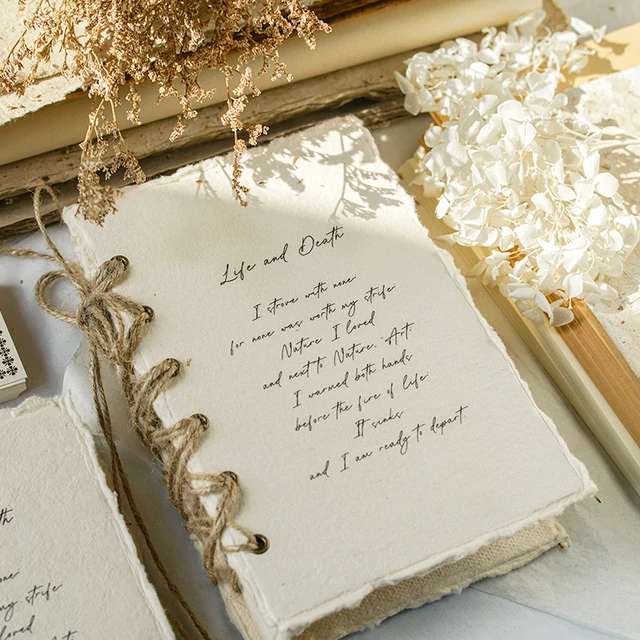 Life and Death
I strove with none.
for none was worth my strife.
Nature I loved
and next to Nature, Art.
I warmed both hands
before the fire of life.
It sinks
and I am ready to depart
my strife.